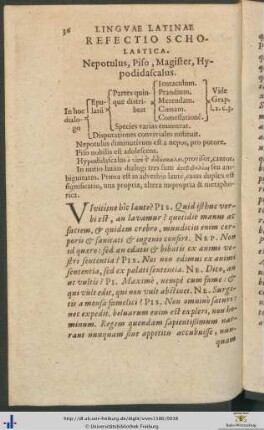 36 LINGVAE LATINAE
REFECTIO SCHO-
LASTICA.
Nepotulus, Piso, Magister, Hy-
podidascalus.
In hoc dialogo
Epulas
Partes quinque distribuit
Ientaculum.
Prandium.
Merendam.
Cœnam.
Comessationē.
Vide
Grap.
Species varias enumerat.
Disputationes conviviales instituit.
Nepotulus diminutivum est a nepos, pro putore.
Piso nobilis est adolescens.
Hypodidascalus provisor, cantor.
In initio huius dialogi tres sunt seu am-
biguitates. Prima est in adverbio laute, cuius duplex est
significatio, una propria, altera impropria & metapho-
rica.
VIvitisne hîc lauté? PIS. Quid istbuc ver-
bi est, an lavamur? quotidie manus ac
faciem, & quidem crebro, munditia enim cor-
poris & sanitati & ingenio confert. NEP. Non
id quæro: sed an edatis & bibatis ex animi ve-
stri sententia? PIS. Nos non edimus ex animi
sententia, sed ex palati sententia. NE. Dico, an
ut vultis? PI. Maxime, nempe cum fame: &
qui vult edit, qui non vult abstinet. NE. Surge-
tis a mensa famelici? PIS. Non omnino saturi:
nec expedit. beluarum enim est expleri, non ho-
minum. Regem quendam sapientissimum nar-
rant nunquam sine appetitu accubuisse, nun-
quam
http://dl.ub.uni-freiburg.de/diglit/vives1580/0038
© Universitätsbibliothek Freiburg